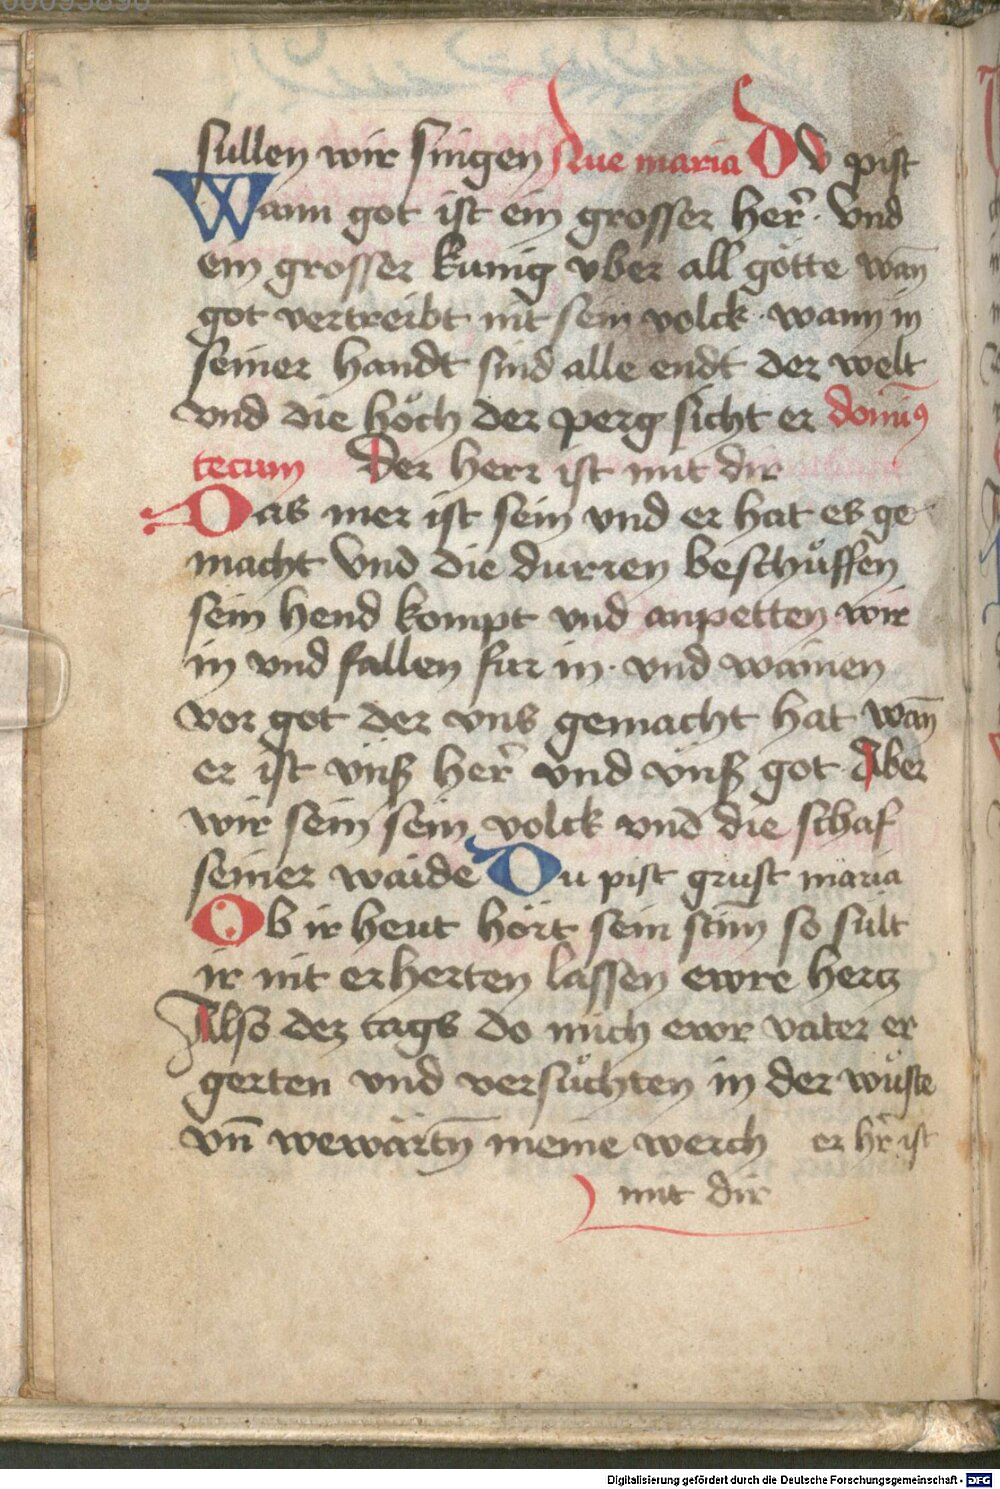 sullen wir singen Aue maria Du pist
Wann got ist ein grosser her̃ · Vnd
ein grosser kunig vber all götte wañ
got vertreibt nit sein volck · wann in
seiner handt sind alle endt der welt
vnd die höch der perg sicht er domin9
tecum Der herr ist mit dir
Das mer ist sein vnd er hat es ge
macht Vnd die durren beschuͦffen
sein hend kompt vnd anpetten wir
in vnd fallen fur in · vnd wainen
vor got der vns gemacht hat wañ
er ist vnß her̃ vnd vnß got Aber
wir sein sein volck vnd die schaf
seiner waide Du pist grust maria
Ob ir heut hört sein stim̃ so sült
ir nit erherten lassen ewre hercz
Also dez tags do mich ewr vater er
gerten vnd versuͦchten in der wuͤste
vn̄ wewärtn̄ meine werch er hr̃ ist
mit dir
Digitalisierung gefördert durch die Deutsche Forschungsgemeinschaft - DFG